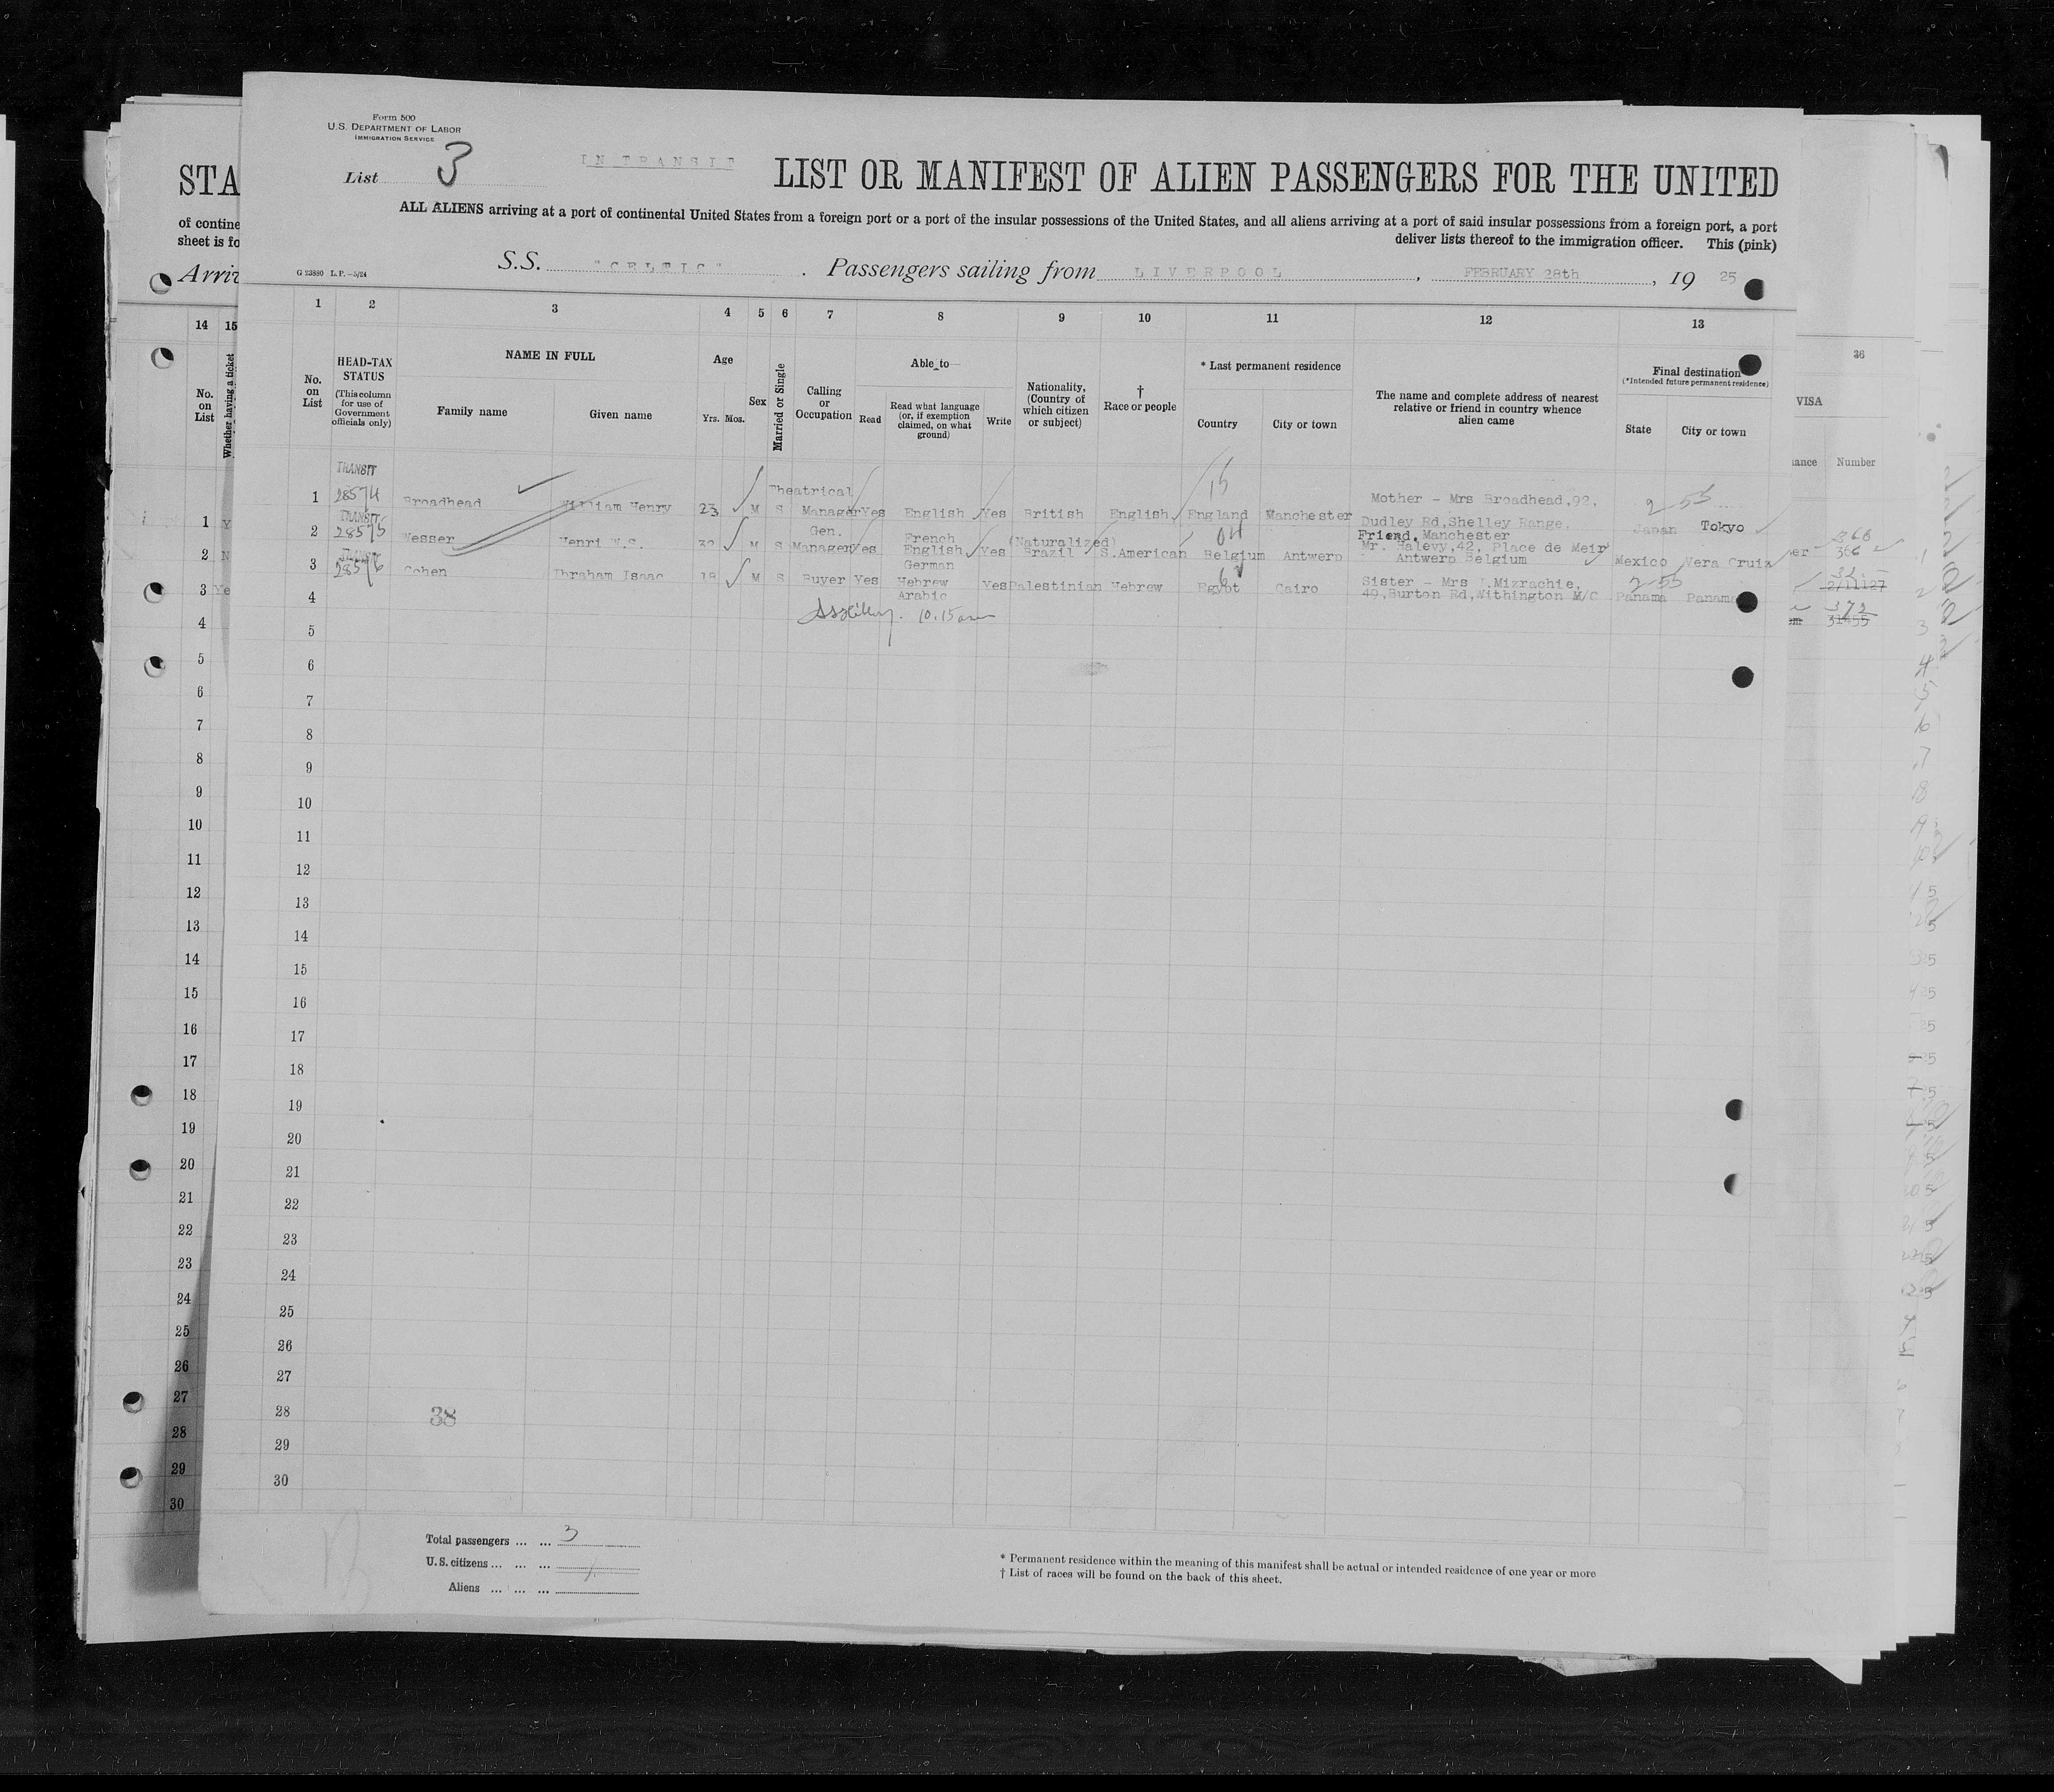 Form 500
U.S. DEPARTMENT OF LABOR
IMMIGRATION SERVICE
List 3
IN TRANSIT
LIST OR MANIFEST OF ALIEN PASSENGERS FOR THE UNITED
ALL ALIENS arriving at a port of continental United States from a foreign port or a port of the insular possessions of the United States, and all aliens arriving at a port of said insular possessions from a foreign port, a port
deliver lists thereof to the immigration officer. This (pink)
G 23880 L.P.—5/24
S.S. "CELTIC". Passengers sailing from LIVERPOOL, FEBRUARY 28th, 19 25
STA
of contine
sheet is fo
Arriv
14 15
No. on List
Whether having a ticket
1 2 3 4 5 6 7 8 9 10 11 12 13
No. on List
HEAD-TAX STATUS
(This column for use of Government officials only)
NAME IN FULL
Family name
Given name
Age
Yrs. Mos.
Sex
Married or Single
Calling or Occupation
Able to
Read
Read what language (or, if exemption claimed, on what ground)
Write
Nationality, (Country of which citizen or subject)
† Race or people
* Last permanent residence
Country
City or town
The name and complete address of nearest relative or friend in country whence alien came
Final destination
(*Intended future permanent residence)
State
City or town
36
VISA
Number
1 TRANSIT 28574 Broadhead William Henry 23 M S Theatrical Manager Yes English Yes British English England Manchester Mother - Mrs Broadhead, 92, Dudley Rd, Shelley Range, Manchester Japan Tokyo
2 TRANSIT 28575 Wesser Henri W.S. 32 M S Gen. Manager Yes French English German Yes (Naturalized) Brazil S.American Belgium Antwerp Friend. Mr. Halevy, 42, Place de Meir Antwerp Belgium Mexico Vera Cruiz
3 TRANSIT 28576 Cohen Ibraham Isaac 18 M S Buyer Yes Hebrew Arabic Yes Palestinian Hebrew Egypt Cairo Sister - Mrs I.Mizrachie, 49, Burton Rd, Withington M/C Panama Panama
15
04
2-55
2-55
10.15am
366
2/11127
372
31455
4
5
6
7
8
9
10
11
12
13
14
15
16
17
18
19
20
21
22
23
24
25
26
27
28
29
30
38
Total passengers ... ... 3
U.S. citizens ... ... ...
Aliens ... ... ...
* Permanent residence within the meaning of this manifest shall be actual or intended residence of one year or more
† List of races will be found on the back of this sheet.